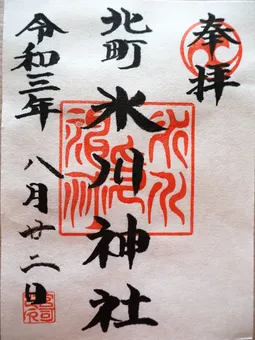 奉拝
北町
氷川神社
令和三年
八月廿二日